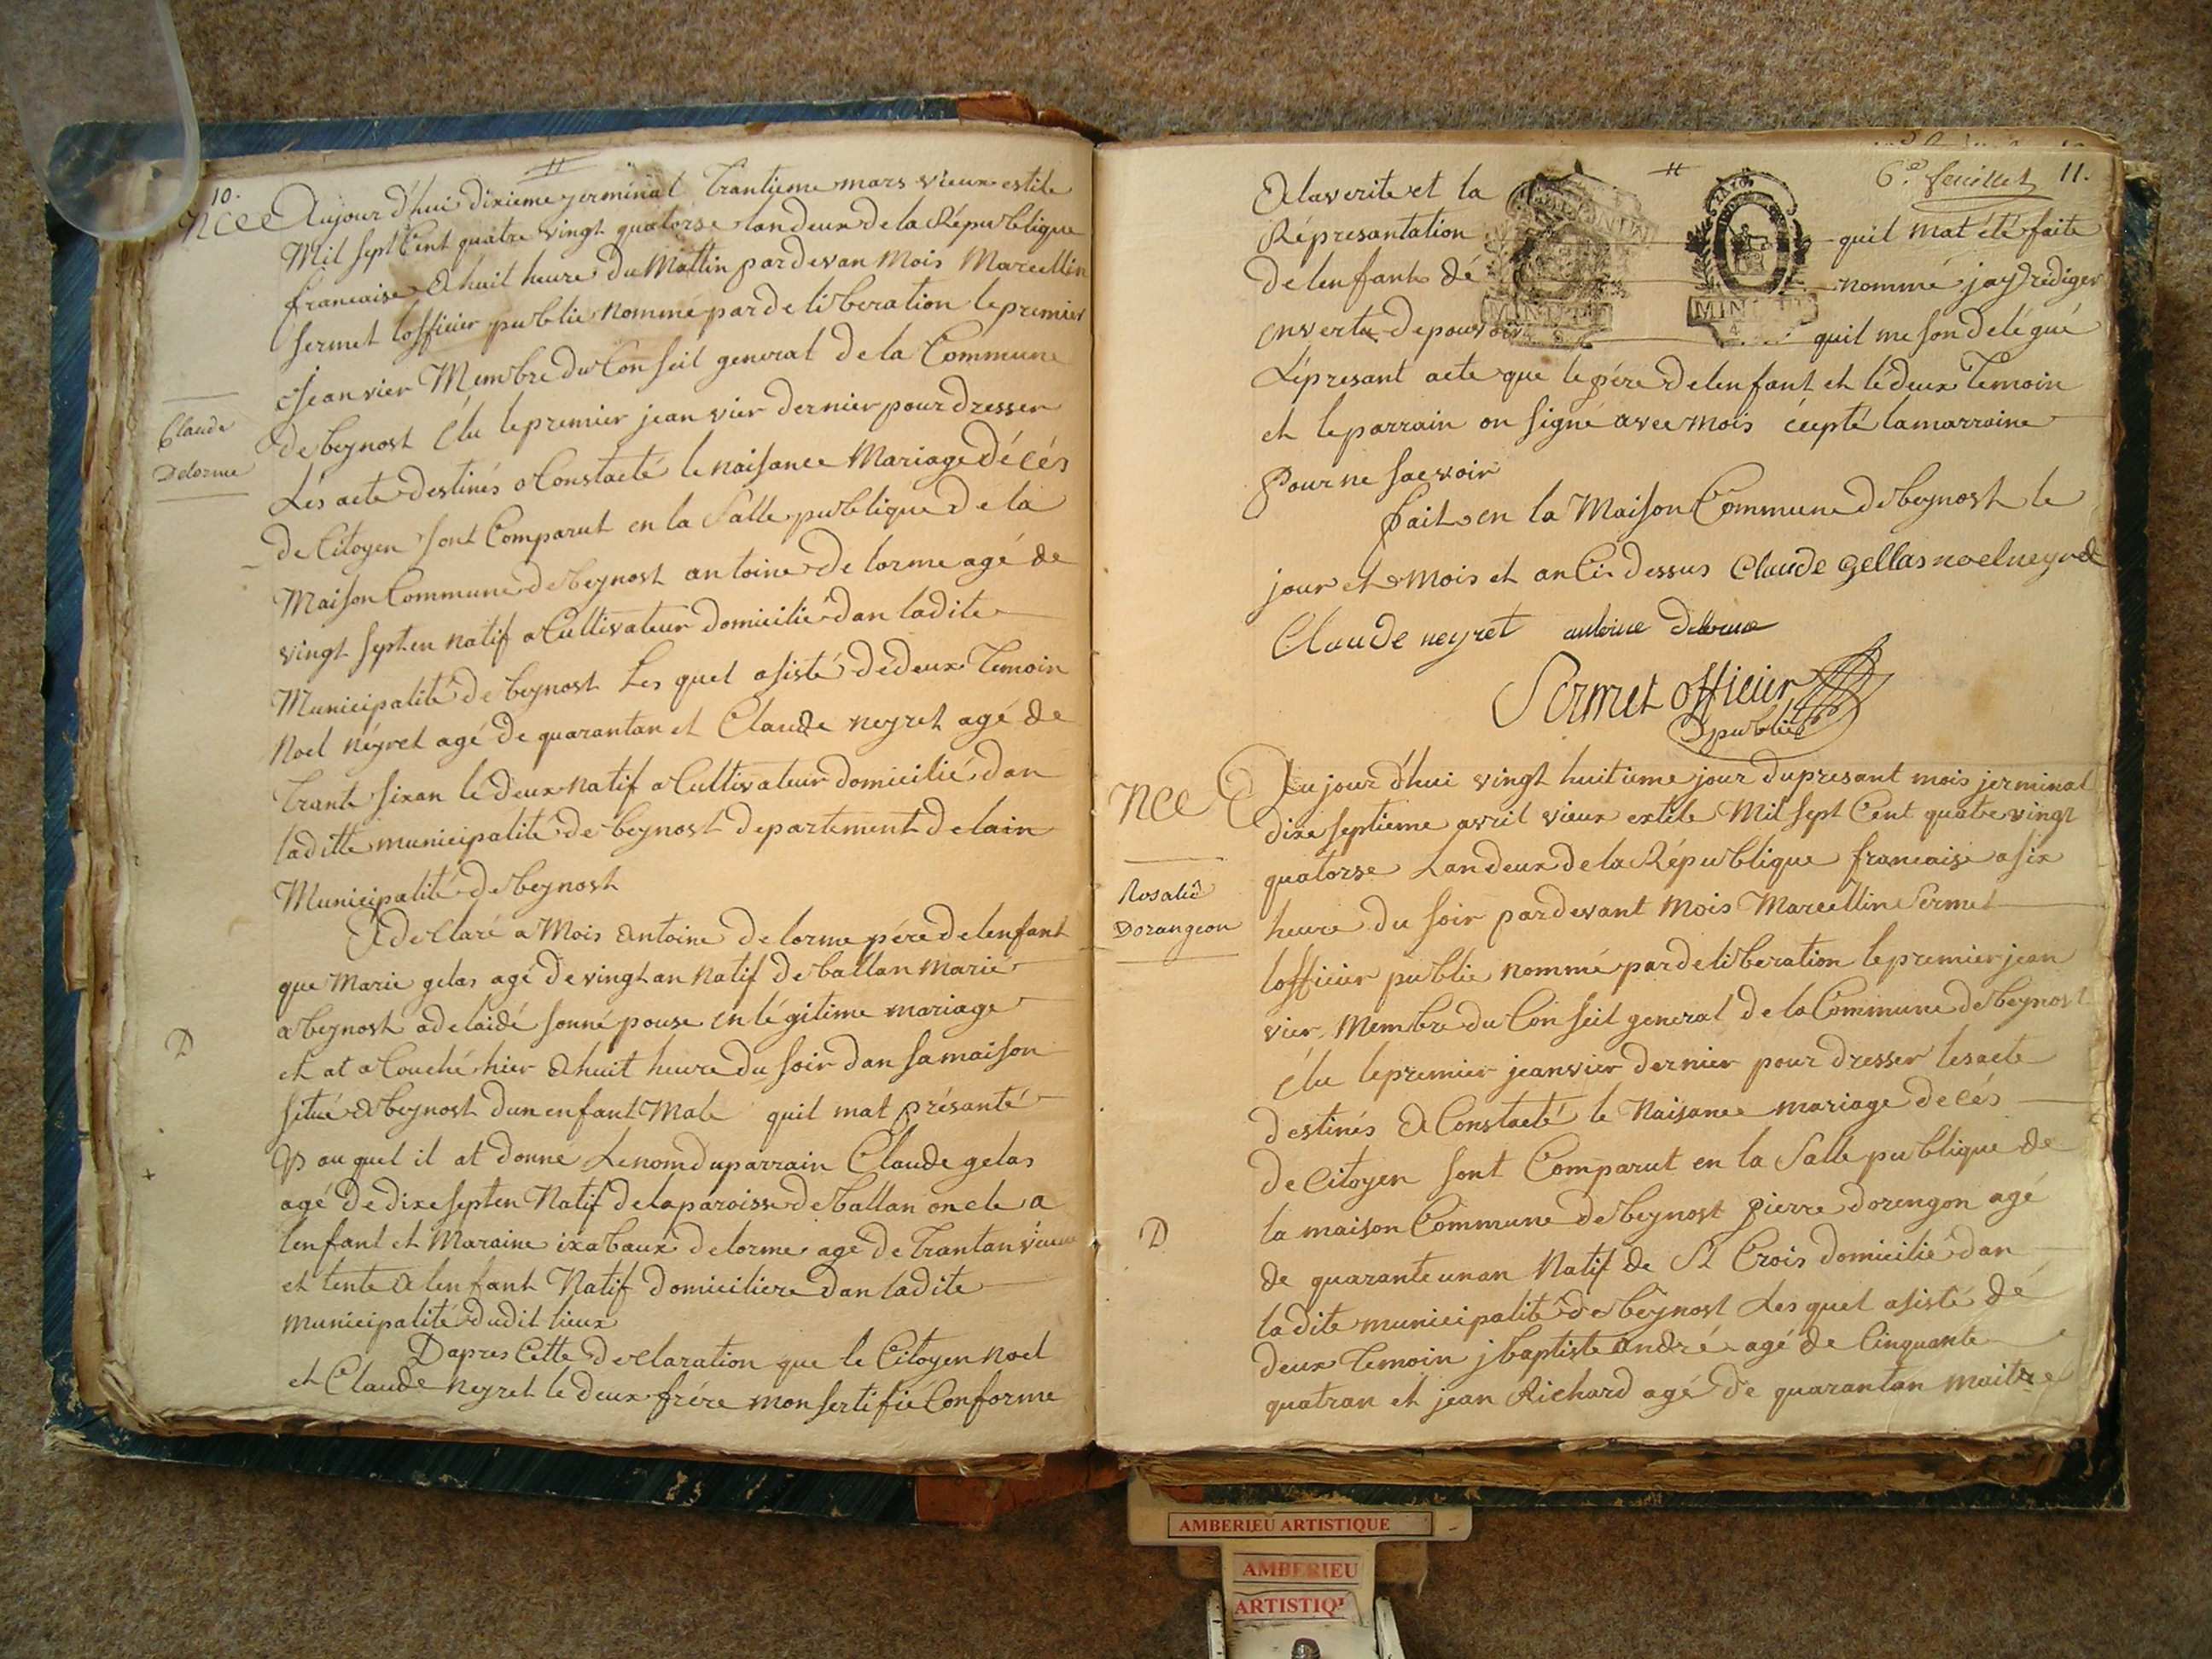 10.
nce Aujour d'hui dixieme germinal Trantieme mars vieux estile
Mil sept Cent quatre vingt quatorse lan deux de la République
francaise a huit heure du Mattin pardevan Mois Marcellin
sermet lofficier public nommé par deliberation le premier
Jeanvier Membre du Conseil general de la Commune
de beynost élu le premier jeanvier dernier pour dresser
Claude
Delorme
Lés acte destinés a Constacté le naisance Mariage décés
de Citoyen sont Comparut en la Salle publique de la
Maison Commune de beynost antoine de lorme agé de
vingt septen natif a Cultivateur domicilié dan ladite
Municipalité de beynost Les quel asisté dé deux Temoin
Noel néyret agé de quarantan et Claude neyret agé de
Trante sixan lé deux natif a Cultivateur domicilié dan
laditte municipalité de beynost departement de lain
Municipalité de beynost
A declaré a Mois antoine de lorme pére de lenfant
que Marie gelas agé de vingt an natif de ballan marié
a beynost adelaidé sonné pouse en légitime mariage
D
et at a Couché hier a huit heure du soir dan sa maison
situé a beynost dun enfant Male quil mat présanté
auquel il at donne Le nom du parrain Claude gelas
agé de dixe septen Natif de la paroisse de ballan oncle a
lenfant et Maraine ixabaux delorme age de Trantan
et tente a lenfant Natif domiciliere dan ladite
municipalité dudit lieux
Dapres Cette declaration que le Citoyen noel
et Claude neyret le deux frére mon sertifié Conforme
6e feuillet 11.
A la verite et la
Répresantation quil mat été faite
de lenfant dé nommé jay rédiger
en vertu de pouvoir quil me son delégué
MINUTE
Lépresant acte que le pére de lenfant et lé deux Temoin
et le parrain on signé avec mois éepté la marraine
pour ne saevoir
fait en la Maison Commune de beynost le
jour et mois et an Ci dessus Claude gellas noel neyret
Claude neyret antoine delorme
Sermet officier
public
nce Aujour d'hui vingt huitieme jour du presant mois jerminal
dixe septieme avril vieux extile Mil sept Cent quatre vingt
quatorse Lan deux de la République francaise a six
Rosalie
Dorangeon
heure du soir pardevant Mois Marcellin Sermet
lofficier public nommé par deliberation le premier jean
vier Membre du Conseil general de la Commune de beynost
élu le premier jeanvier dernier pour dresser les acte
destinés a Constacté le Naisance mariage decés
de Citoyen sont Comparut en la Salle publique de
la maison Commune de beynost pierre dorengon agé
D
de quarante unan Natif de St Crois domicilié dan
ladite municipalité de beynost Les quel asisté dé
deux Temoin jbaptiste andré agé de Cinquante
quatran et jean Richard agé de quarantan maitre
AMBERIEU ARTISTIQUE
AMBERIEU
ARTISTIQ